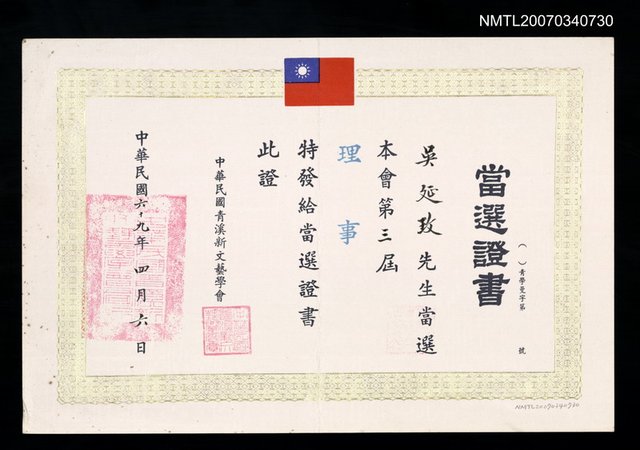 NMTL20070340730
當選證書
( )青學叟字第 號
吳延玫先生當選
本會第三屆
理事
特發給當選證書
此證
中華民國青溪新文藝學會
中華民國六十九年四月六日
NMTL20070340730